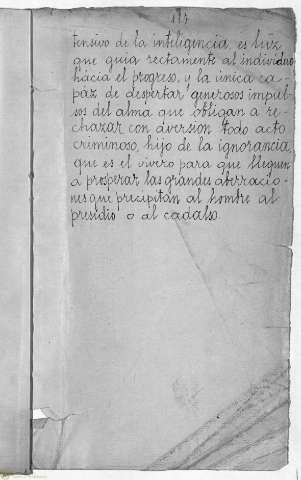 tensivo de la inteligencia, es luz
que guia rectamente al individuo
hacia el progreso, y la única ca-
páz de despertar generosos impul-
sos del alma que obligan a re-
chazar con aversion todo acto
criminoso, hijo de la ignorancia,
que es el vivero para que lleguen
a prosperar las grandes aberracio-
nes que precipitan al hombre al
presidio o al cadalso.